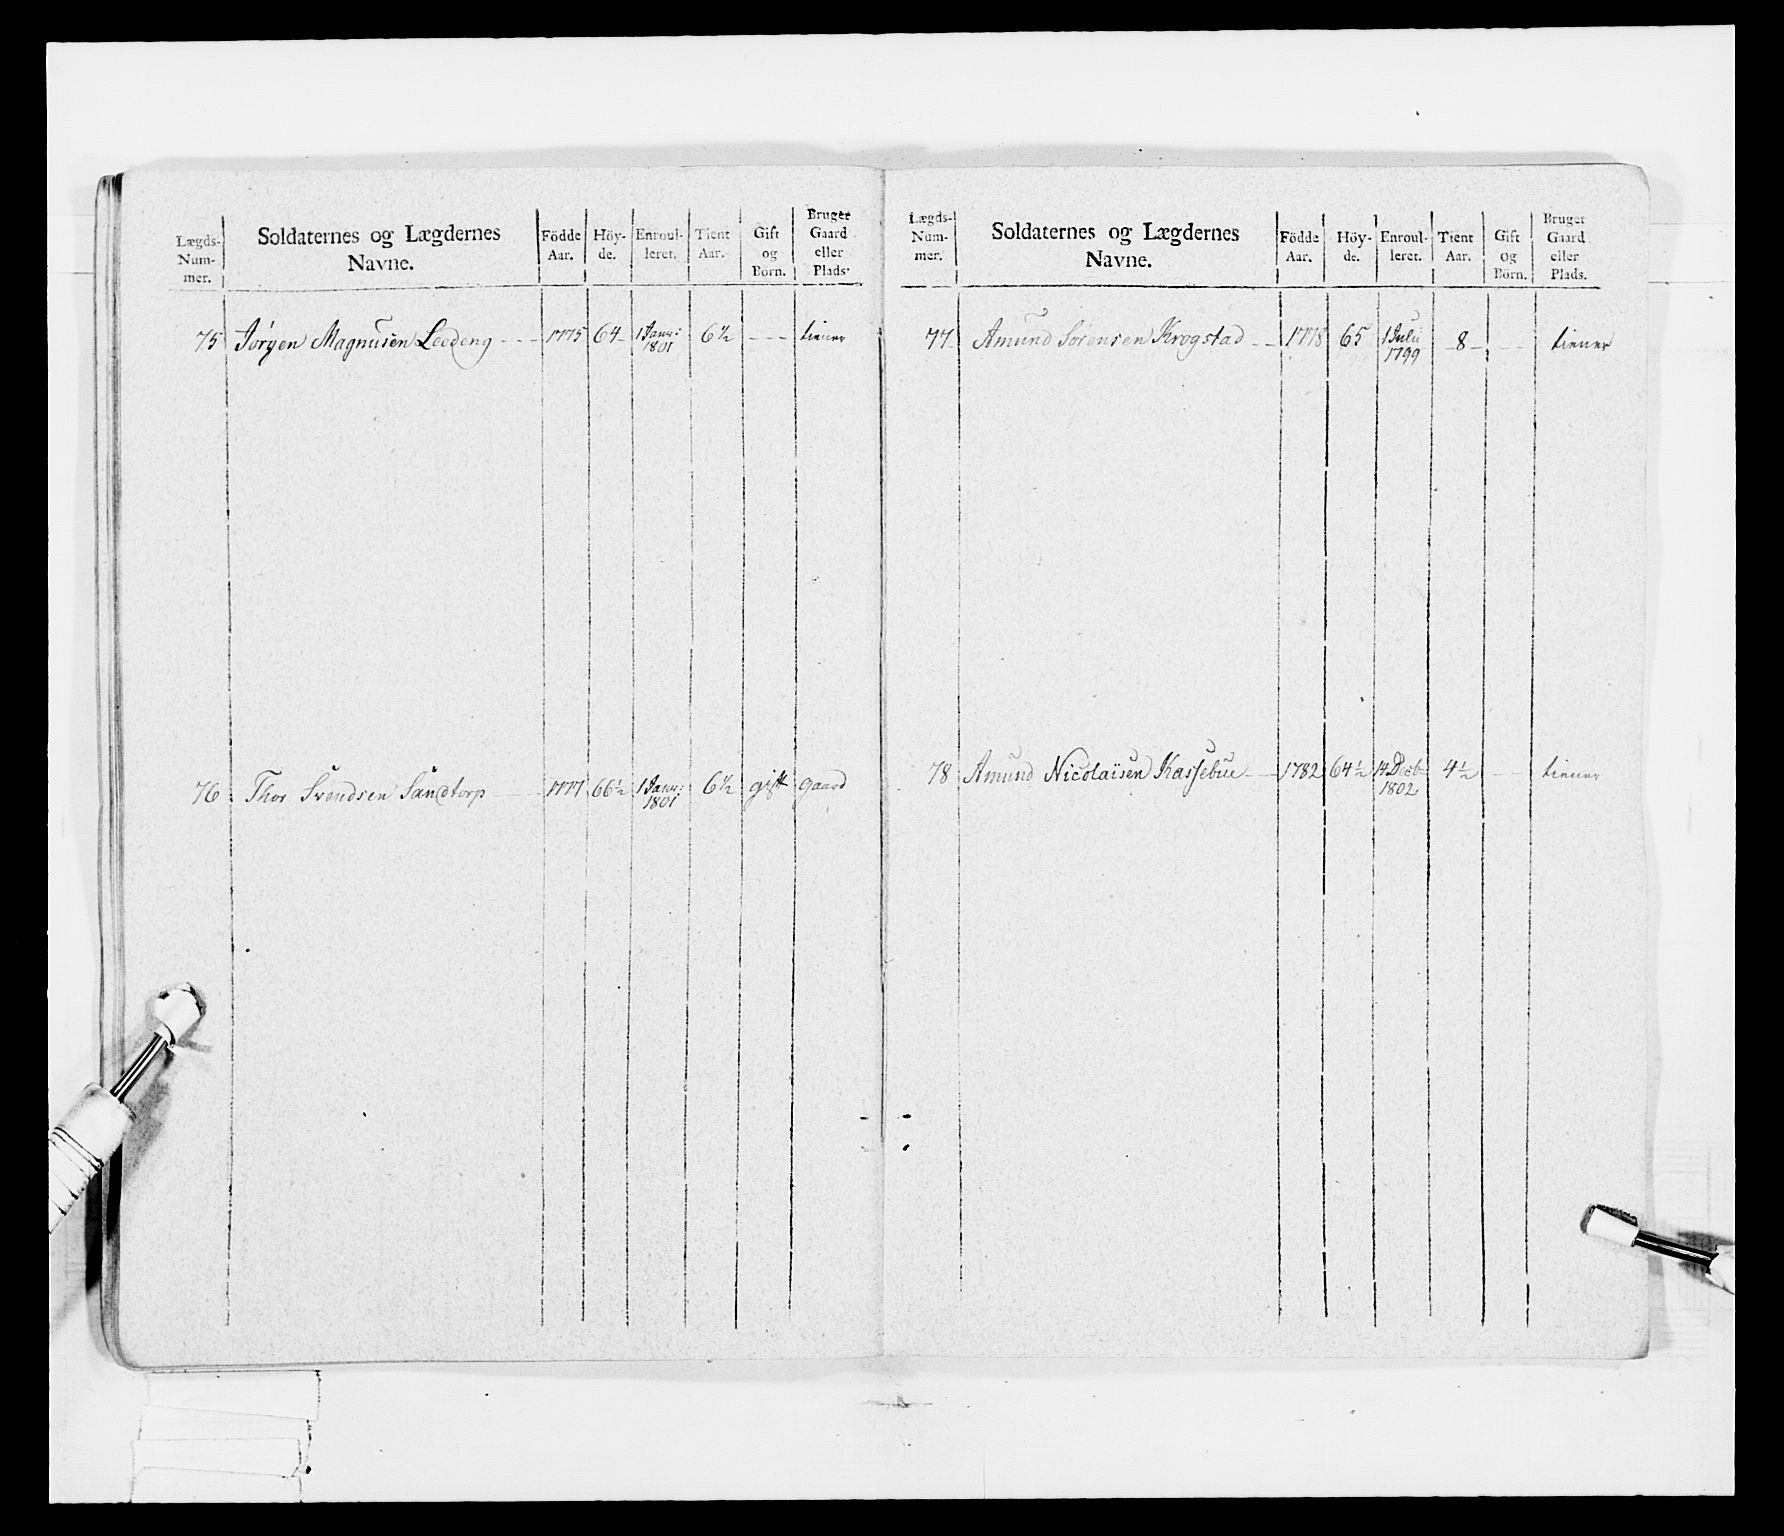 Lægds-Num-mer. Soldaternes og Lægdernes Navne. Födde Aar. Höy-de. Enroul-leret. Tient Aar. Gift og Börn. Bruger Gaard eller Plads.
75 Jörgen Magnusen Leedeng - - - 1775 64 - 1 Janu: 1801 6½ - - - tiener
76 Thor Svendsen Sandtorp 1777 66½ 1 Janu: 1801 6½ gift gaard
Lægds-Num-mer. Soldaternes og Lægdernes Navne. Födde Aar. Höy-de. Enroul-leret. Tient Aar. Gift og Börn. Bruger Gaard eller Plads.
77 Amund Sörensen Krogstad - - 1778 65 1 Julii 1799 - 8 - - - tiener
78 Amund Nicolaisen Kassebue - 1782 64½ 14 Decb 1802 4½ - - tiener